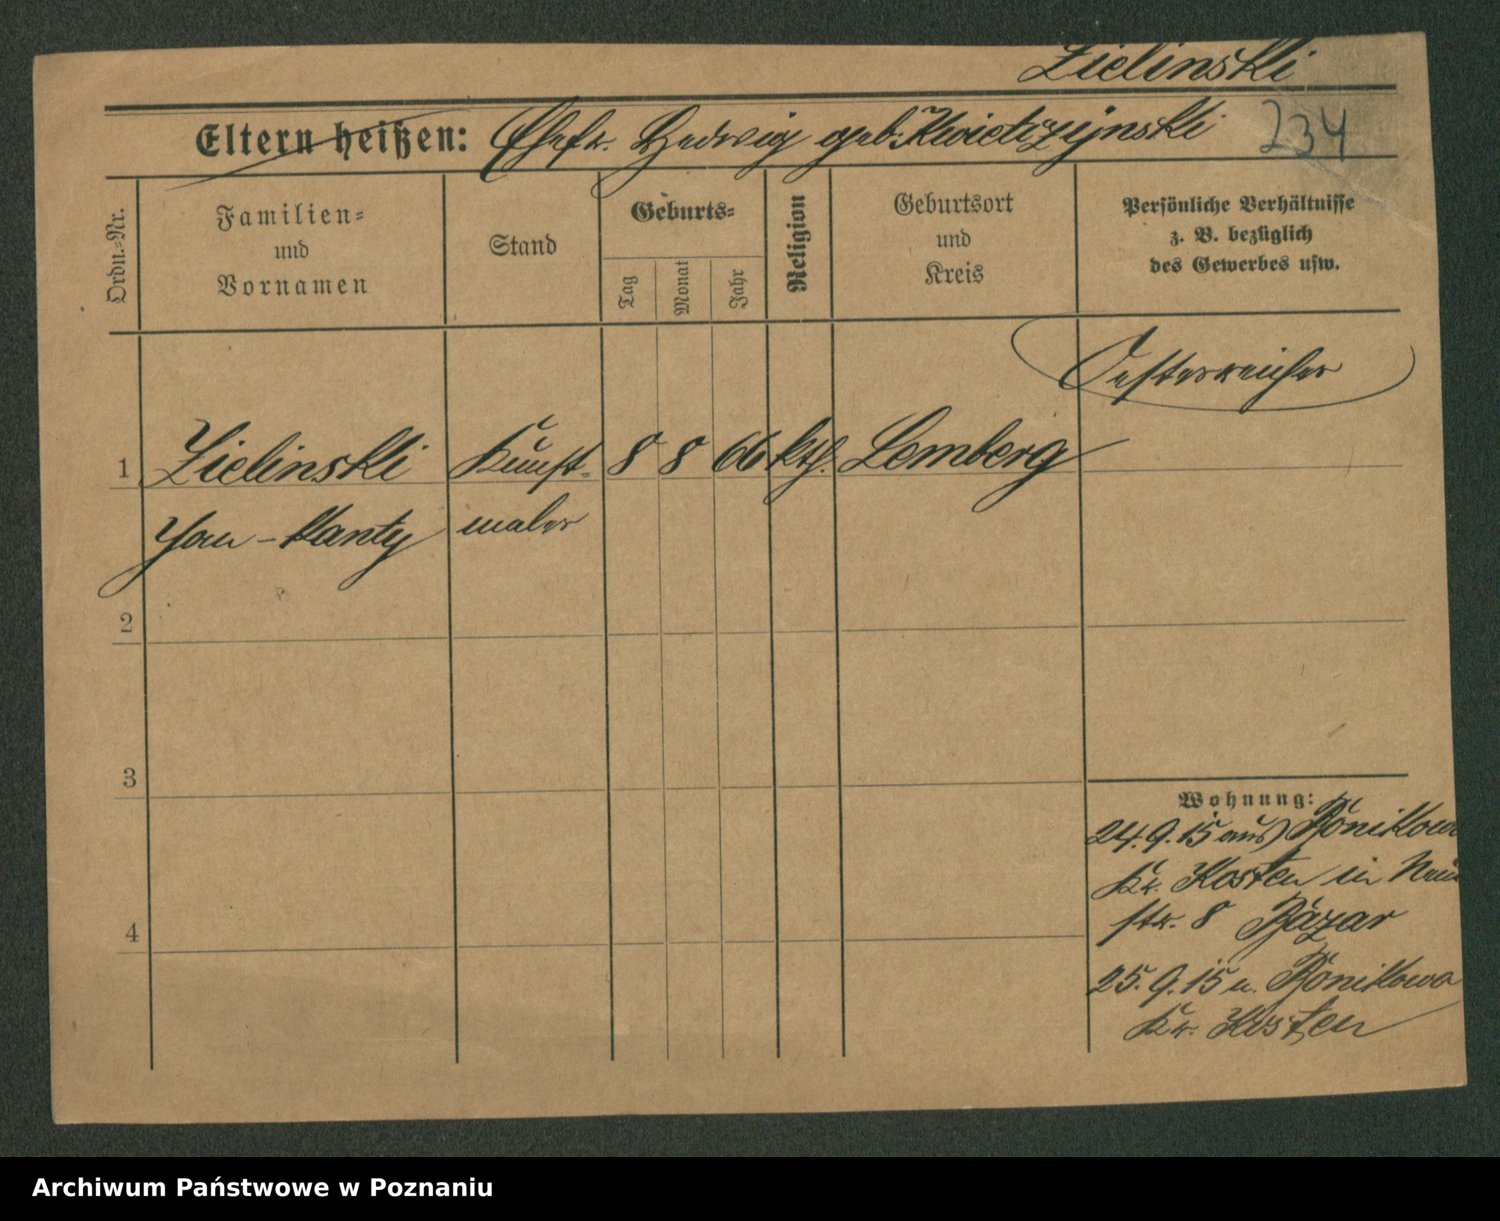 Zielinski
Eltern heißen: Ehefr. Hedwig geb. Kwietczijnski 234
Ordn.-Nr.
Familien-
und
Vornamen
Stand
Geburts-
Tag
Monat
Jahr
Religion
Geburtsort
und
Kreis
Persönliche Verhältnisse
z. B. bezüglich
des Gewerbes usw.
Oesterreicher
1 Zielinski Kunst- 8 8 66 kth. Lemberg
Jan - Kanty maler
2
3
4
Wohnung:
24.9.15 aus Ponikowa
Kr. Kosten in Neue
str. 8 Bazar
25.9.15 n. Ponikowo
Kr. Kosten
Archiwum Państwowe w Poznaniu